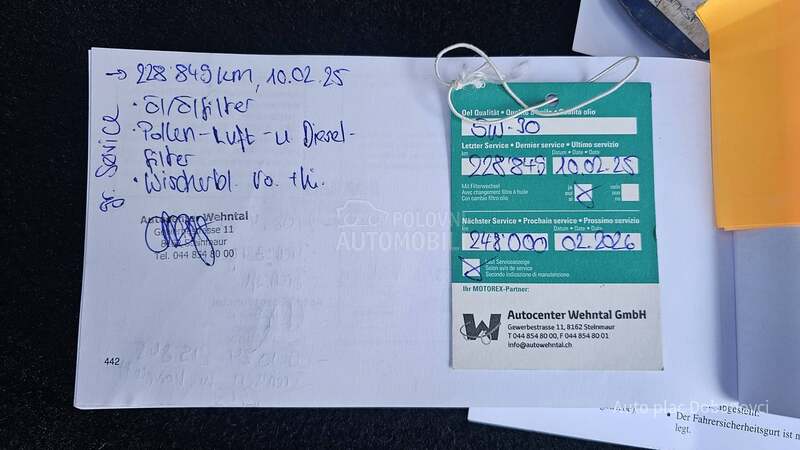 → 228'849 km, 10.02.25
gr. Service
• Öl/Ölfilter
• Pollen-Luft-u Diesel-
filter
• Wischerbl. vo. + hi.
Autocenter Wehntal
Gewerbestrasse 11
8162 Steinmaur
Tel. 044 854 80 00
442
Oel Qualität • Qualité d'huile • Qualità olio
5W-30
Letzter Service • Dernier service • Ultimo servizio
km Datum • Date • Data
228'849 10.02.25
Mit Filterwechsel
Avec changement filtre à huile
Con cambio filtro olio
ja
oui
si
nein
non
no
Nächster Service • Prochain service • Prossimo servizio
km Datum • Date • Data
248'000 02.2026
Laut Serviceanzeige
Selon avis de service
Secondo indicazione di manutenzione
Ihr MOTOREX-Partner:
Autocenter Wehntal GmbH
Gewerbestrasse 11, 8162 Steinmaur
T 044 854 80 00, F 044 854 80 01
info@autowehntal.ch
POLOVNI
AUTOMOBILI
Auto plac Dobanovci
abgestellt.
• Der Fahrersicherheitsgurt ist n
legt.